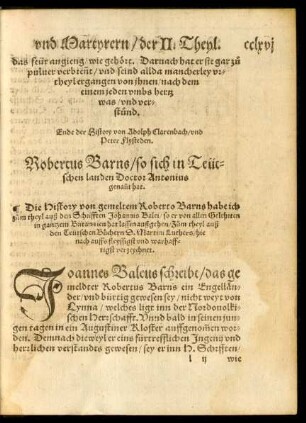 vnd Martyrern / der II. Theyl. cclxvj
das feür angieng / wie gehört. Darnach hat er sie gar zů
puluer verbrent / vnd seind allda mancherley vr-
theyl ergangen von jhnen / nach dem
einem jeden vmbs hertz
was / vnd ver-
stůnd.
Ende der History von Adolph Clarenbach / vnd
Peter Flysteden.
Robertus Barns / so sich in Teüt-
schen landen Doctor Antonius
genañt hat.
¶ Die History von gemeltem Roberto Barns habe ich
zům theyl auß den Schrifften Johannis Balei / so er von allen Gelehrten
in gantzem Britannien hat lassen außgehen / Zům theyl auß
den Teütschen Büchern D. Martini Luthers / hie
nach auffs fleyssigst vnd warhaff-
tigst verzeichnet.
Joannes Baleus schreibt / das ge
meldter Robertus Barns ein Engellän-
der / vnd bürtig gewesen sey / nicht weyt von
Lynna / welches ligt inn der Nordouolki-
schen Herrschafft. Vnnd bald in seinen jun-
gen tagen in ein Augustiner Kloster auffgenom̃en wor-
den. Demnach dieweyl er eins fürtrefflichen Jngenij vnd
herrlichen verstandes gewesen / sey er inn H. Schrifften /
l ij wie